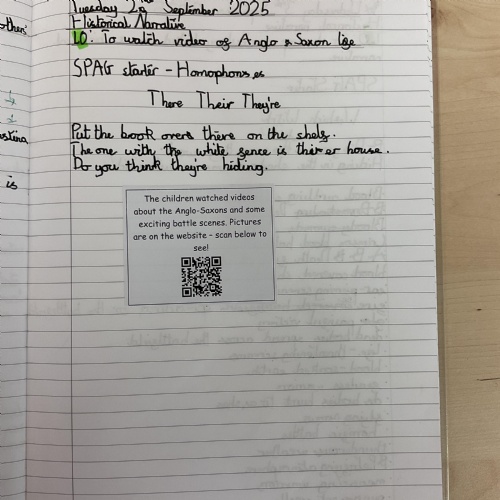 Tuesday September 2025
Historical Narrative
LO: To watch video of Anglo Saxon life
SPAG starter - Homophones
There Their They're
Put the book over there on the shelf.
The one with the white fence is house.
Do you think they're hiding.
The children watched videos
about the Anglo-Saxons and some
exciting battle scenes. Pictures
are on the website - scan below to
see!
is